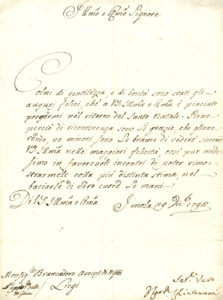 Ill.mo e R.mo Signore
Colmi di gentilezza e di bontà sono stati gli
augurj felici, che a VS Ill.ma e R.ma è piaciuto
porgermi nel ritorno del Santo Natale. Piene
perciò di riconoscenza sono le grazie che
rendo, ne minori sono le brame di vedere
VS Ill.ma nelle maggiori felicità, così pur
simo in favorevoli incontri di poter rimo
strarmele colla più distinta stima, nel
baciarle di vero cuore le mani
Di VS Ill.ma e R.ma
Imola 29
Brancadoro
Liegi
Chiaramonti